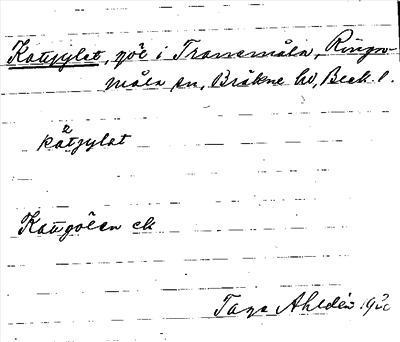 Kattgylet, göl i Tranemåla, Ringa-
måla sn, Bräkne hd, Blek. l.
kat²gylət
Kattgölen ek
Tage Ahldén 1920